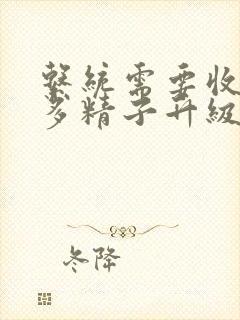 繫統需要收
多精子升級
冬降